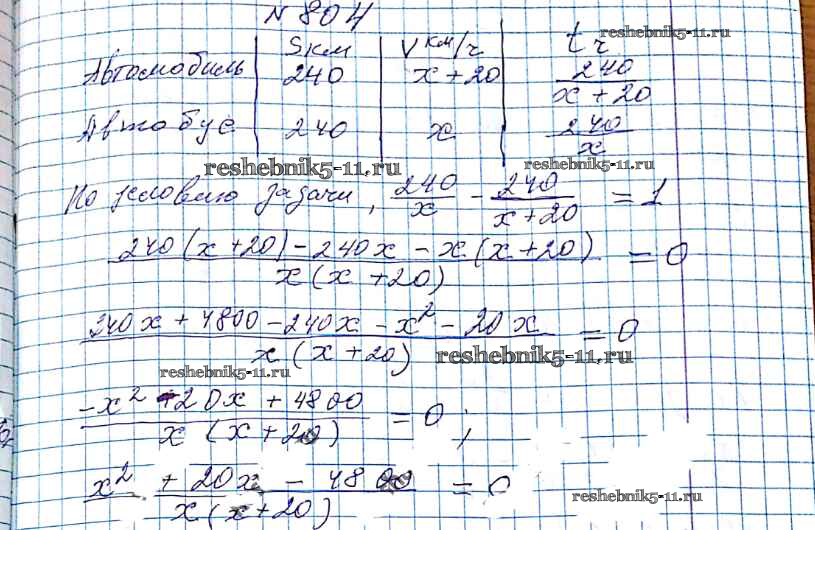 № 804
reshebnik5-11.ru
S км V км/ч t ч
Автомобиль 240 x + 20 240/(x + 20)
Автобус 240 x 240/x
reshebnik5-11.ru reshebnik5-11.ru
По условию задачи, 240/x - 240/(x + 20) = 1
(240(x + 20) - 240x - x(x + 20))/(x(x + 20)) = 0
(340x + 4800 - 240x - x² - 20x)/(x(x + 20)) = 0
reshebnik5-11.ru reshebnik5-11.ru
(-x² + 20x + 4800)/(x(x + 20)) = 0;
(x² + 20x - 4800)/(x(x + 20)) = 0
reshebnik5-11.ru